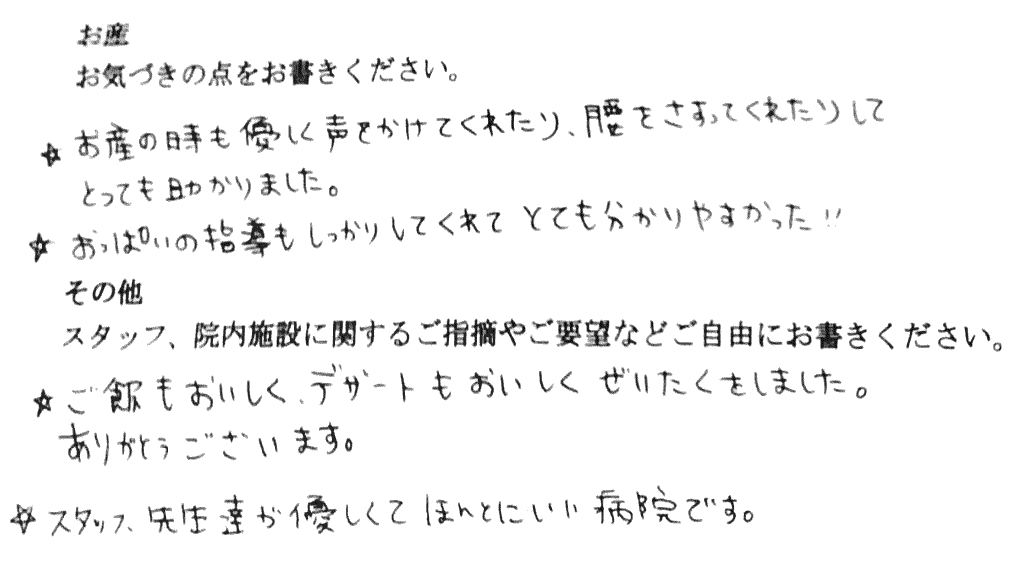 お産
お気づきの点をお書きください。
☆ お産の時も優しく声をかけてくれたり、腰をさすってくれたりして
とっても助かりました。
☆ おっぱいの指導もしっかりしてくれて とても分かりやすかった!!
その他
スタッフ、院内施設に関するご指摘やご要望などご自由にお書きください。
☆ ご飯もおいしく、デザートもおいしく ぜいたくをしました。
ありがとうございます。
☆ スタッフ、先生達が優しくて ほんとにいい病院です。